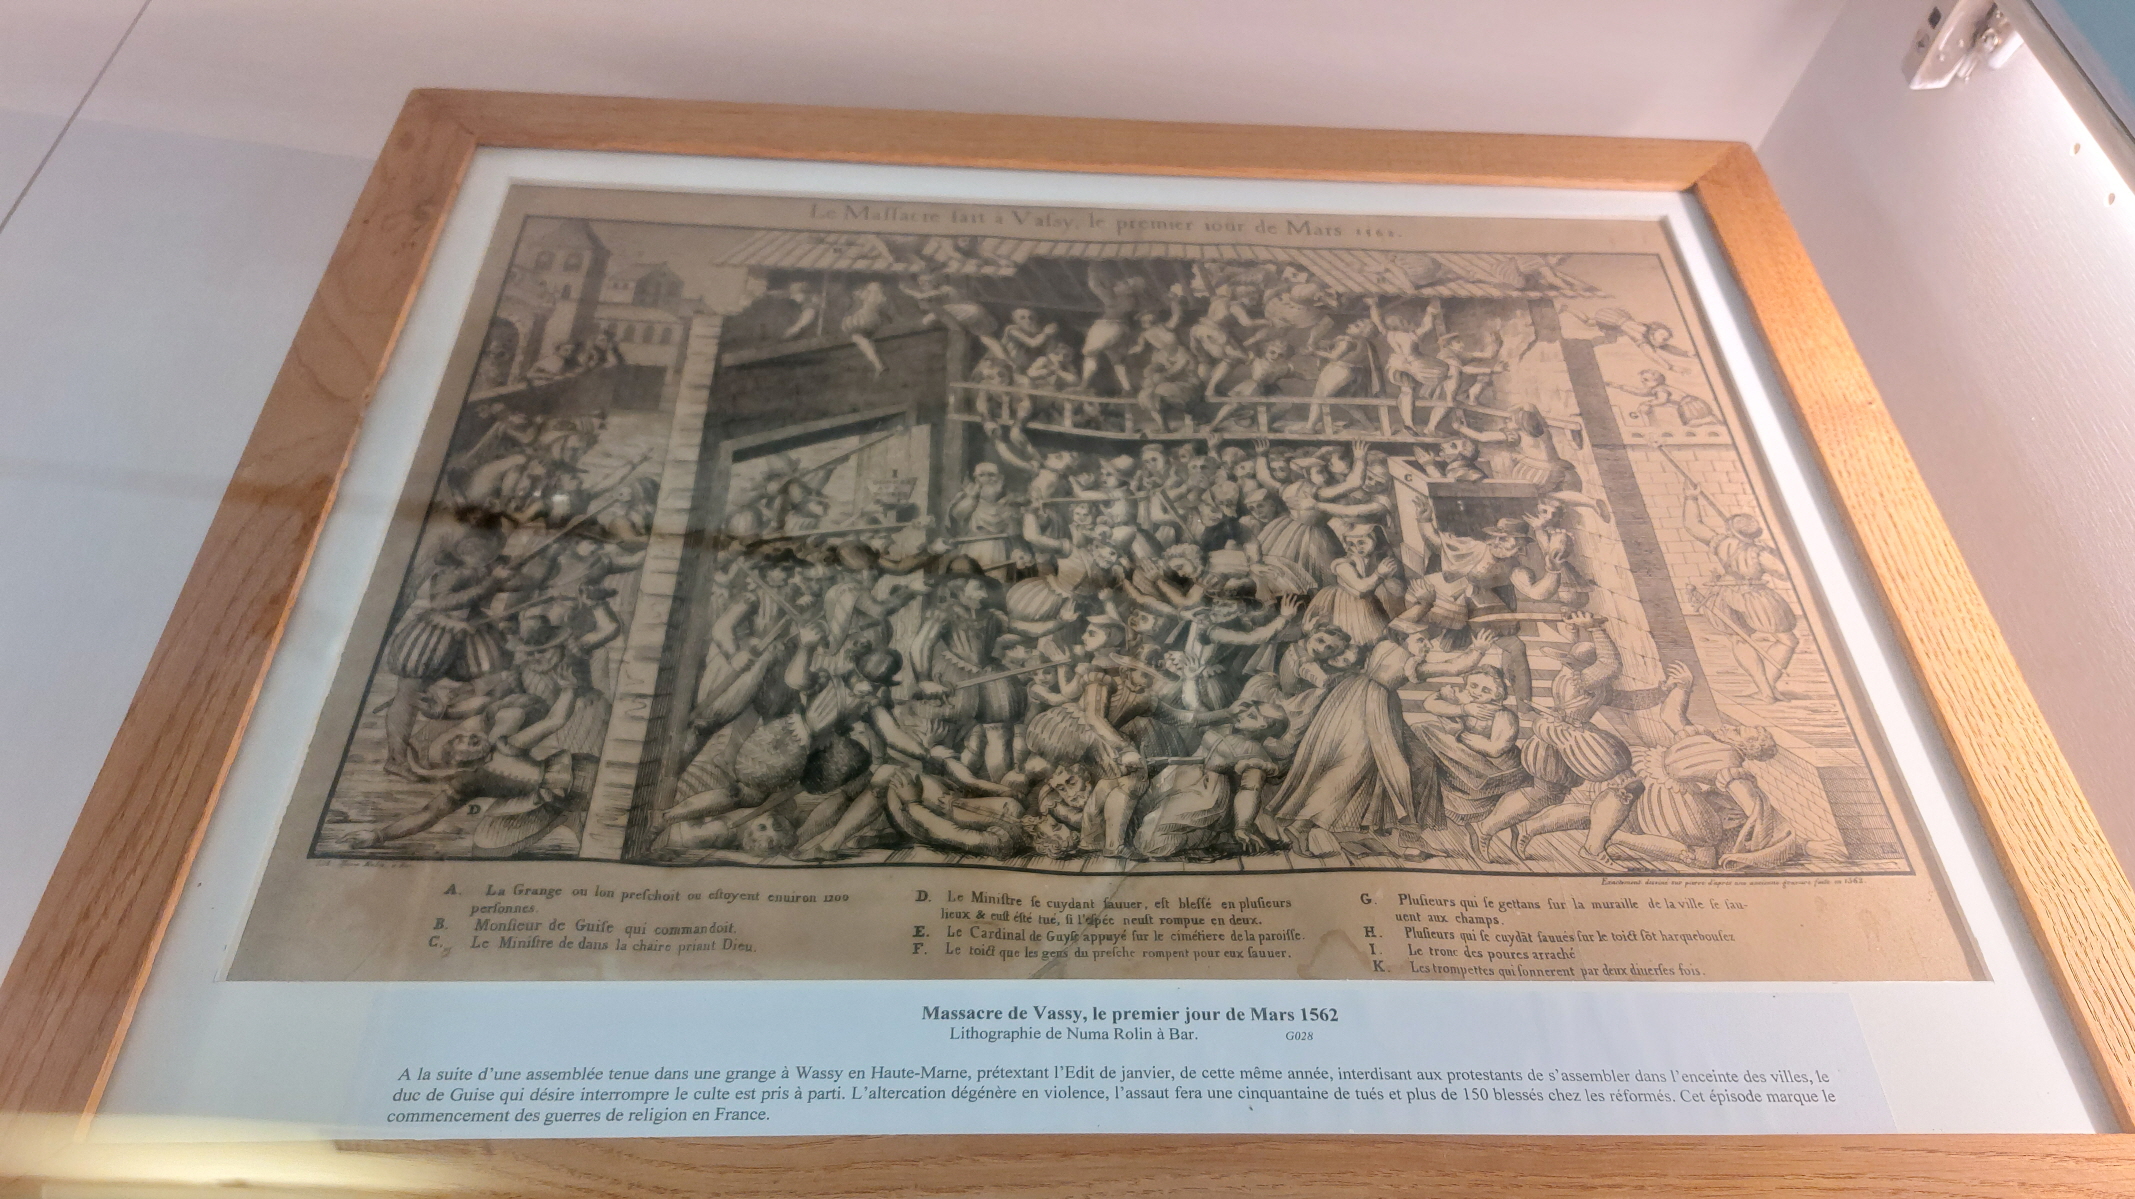 Le Maſſacre fait a Vaſsy, le premier iour de Mars 1562.
I
C
G
D
Exactement dessiné sur pierre d'après une ancienne gravure faite en 1562.
A. La Grange ou lon preſchoit ou eſtoyent enuiron 1200
perſonnes.
B. Monſieur de Guiſe qui commandoit.
C. Le Miniſtre de dans la chaire priant Dieu.
D. Le Miniſtre ſe cuydant ſauuer, eſt bleſſé en pluſieurs
lieux & euſt éſté tué, ſi l'eſpée neuſt rompue en deux.
E. Le Cardinal de Guyſe appuyé ſur le cimétiere de la paroiſſe.
F. Le toict que les gens du preſche rompent pour eux ſauuer.
G. Pluſieurs qui ſe gettans ſur la muraille de la ville ſe ſau-
uent aux champs.
H. Pluſieurs qui ſe cuydāt ſauués ſur le toict ſōt harquebouſez
I. Le tronc des poures arraché
K. Les trompettes qui ſonnerent par deux diuerſes fois.
Massacre de Vassy, le premier jour de Mars 1562
Lithographie de Numa Rolin à Bar. G028
A la suite d'une assemblée tenue dans une grange à Wassy en Haute-Marne, prétextant l'Edit de janvier, de cette même année, interdisant aux protestants de s'assembler dans l'enceinte des villes, le
duc de Guise qui désire interrompre le culte est pris à parti. L'altercation dégénère en violence, l'assaut fera une cinquantaine de tués et plus de 150 blessés chez les réformés. Cet épisode marque le
commencement des guerres de religion en France.